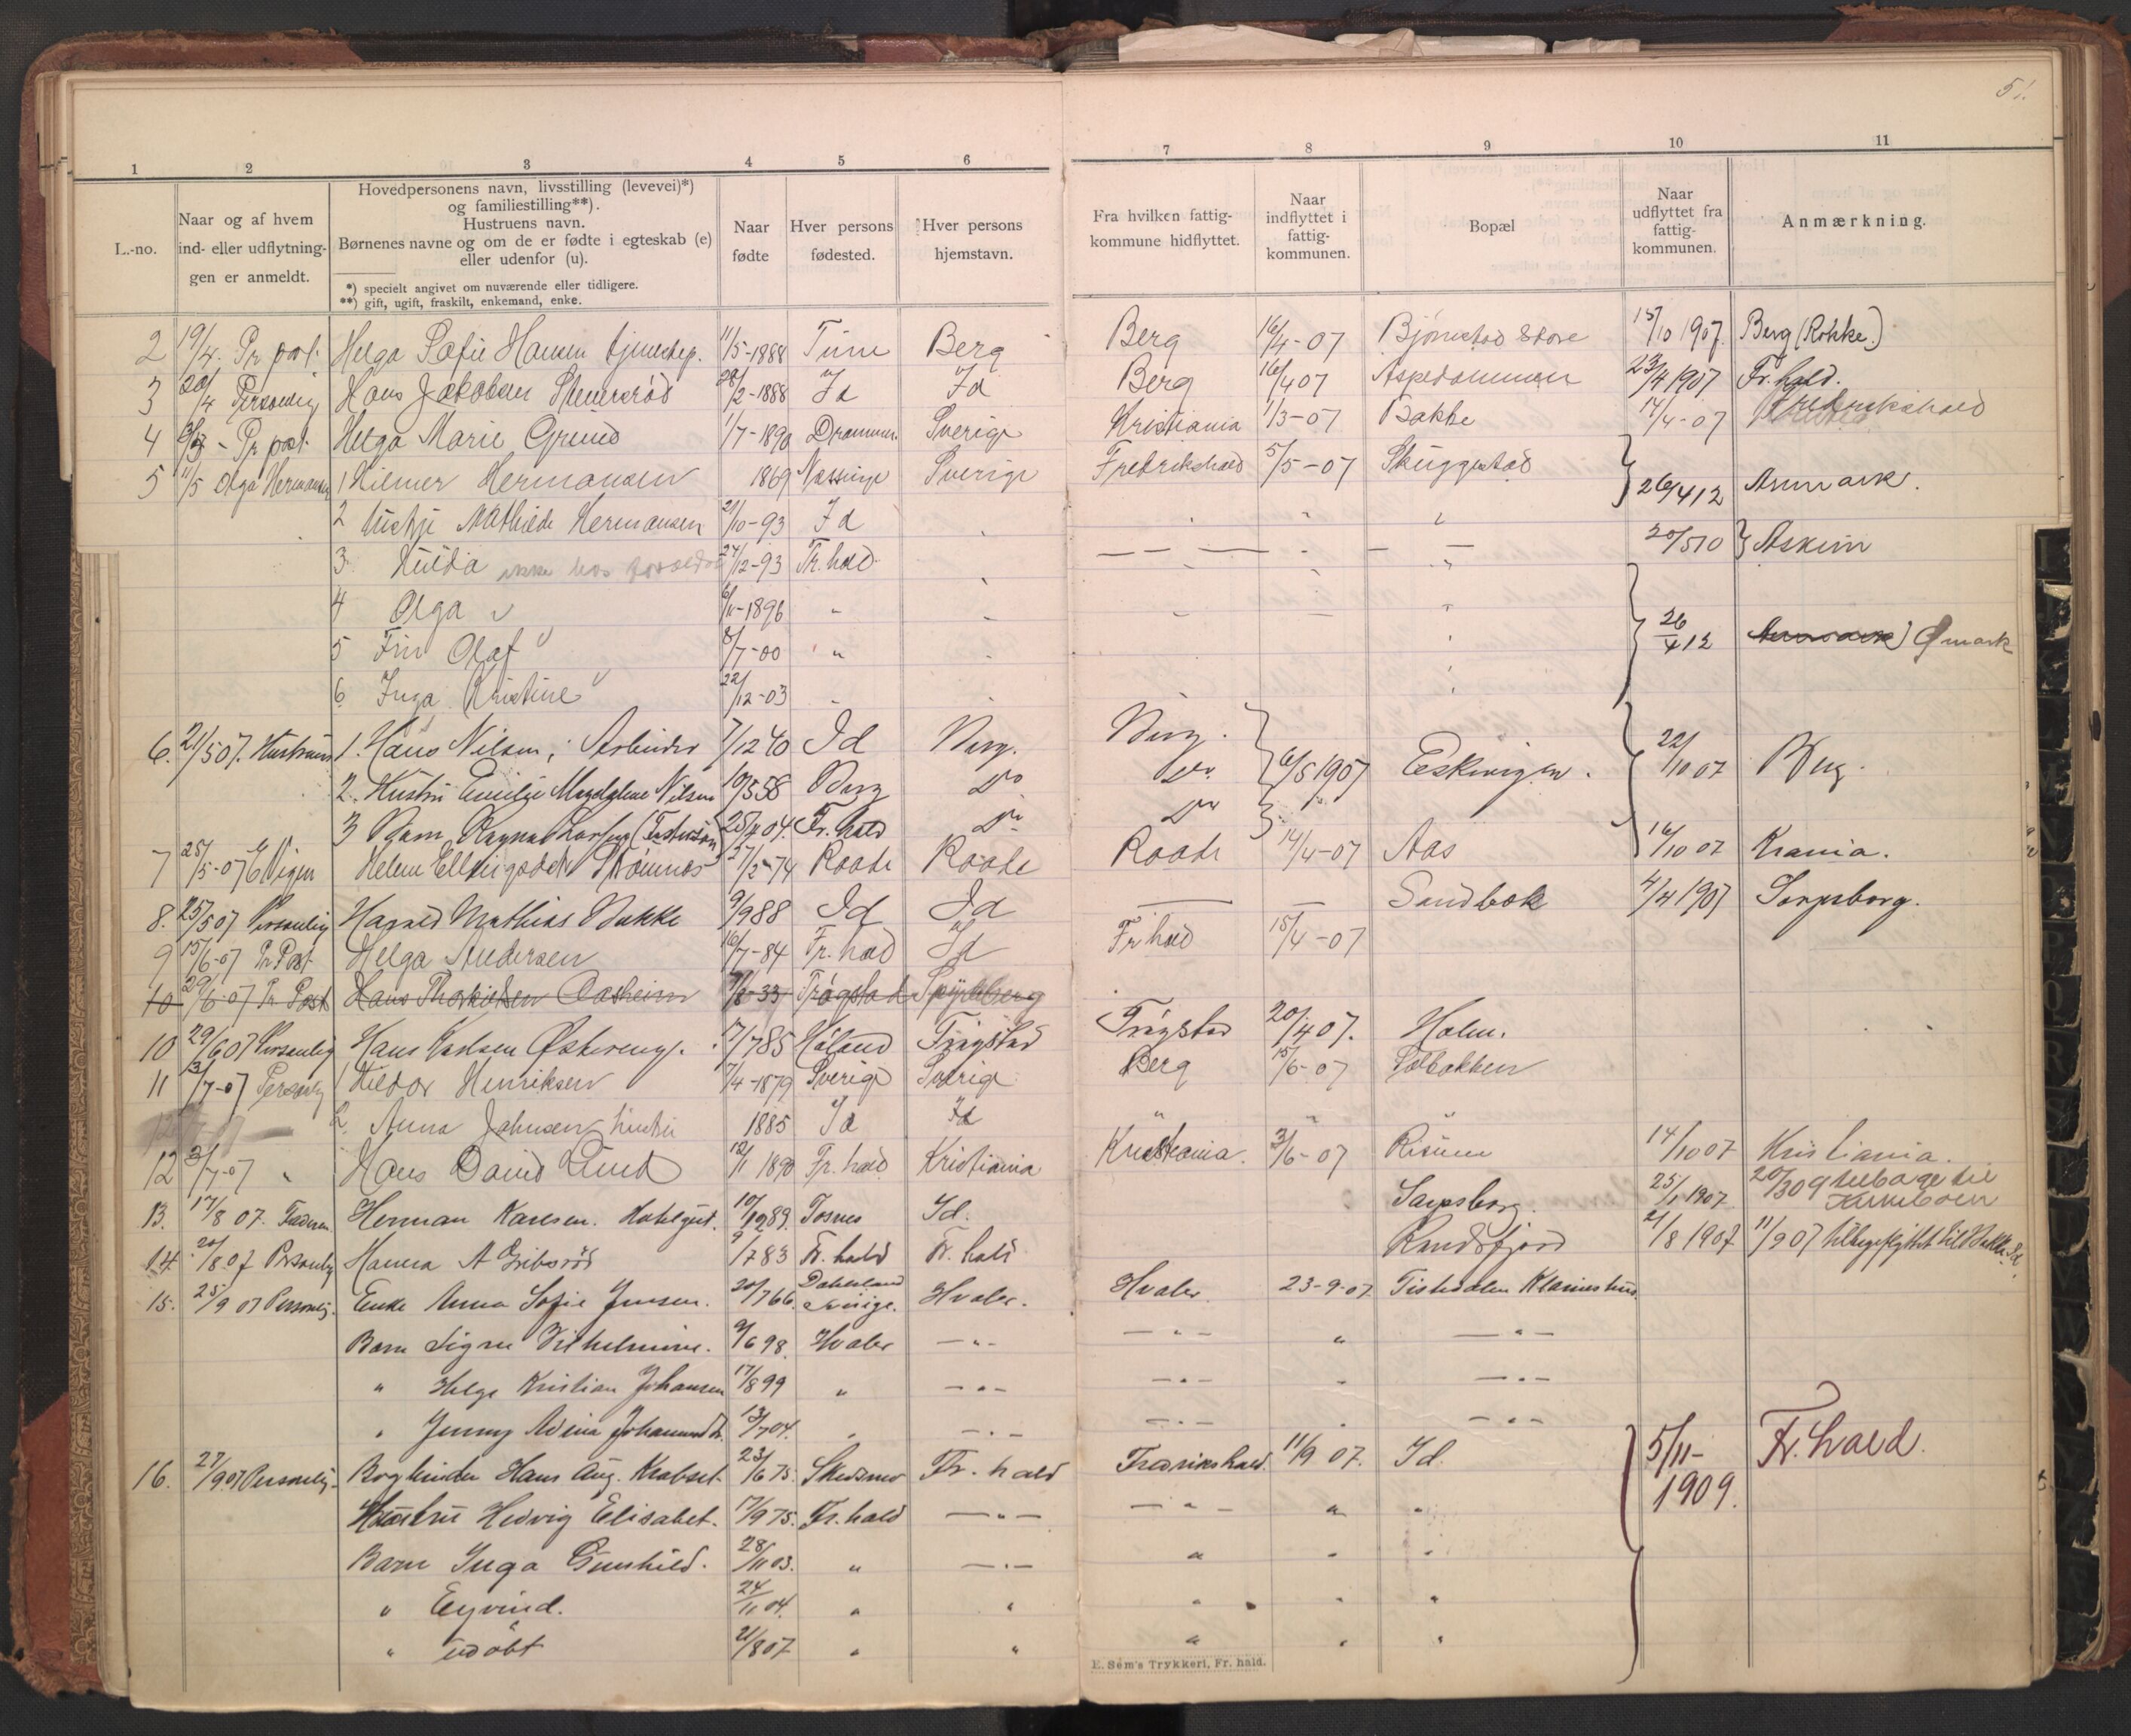 51.
1 2 3 4 5 6 7 8 9 10 11
L.-no.
Naar og af hvem
ind- eller udflytnin-
gen er anmeldt.
Hovedpersonens navn, livsstilling (levevei)*)
og familiestilling**).
Hustruens navn.
Børnenes navne og om de er fødte i egteskab (e)
eller udenfor (u).
*) specielt angivet om nuværende eller tidligere.
**) gift, ugift, fraskilt, enkemand, enke.
Naar
fødte
Hver persons
fødested.
Hver persons
hjemstavn.
Fra hvilken fattig-
kommune hidflyttet.
Naar
indflyttet i
fattig-
kommunen.
Bopæl
Naar
udflyttet fra
fattig-
kommunen.
Anmærkning.
2 19/4. Pr post. Helga Sofie Hansen tjenestep. 11/5-1888 Tune Berg Berg 16/4-07 Bjørnstad Store 15/10 1907. Berg (Rokke.)
3 20/4 Personlig Hans Jakobsen 28/2-1888 Id Id Berg 16/4 07 Aspedammen 23/4 1907 Fr.hald.
4 Pr post Helga Marie 1/7-1890 Drammen Sverige Kristiania 1/3-07 Bakke 14/4-07 Fredrikshald
5 11/5 Olga Hermansen 1 Hilmer Hermansen 1869 Sverige Fredrikshald 5/5-07 Skuggestad 26/4 12 Asmark.
2 Mathilde Hermansen 21/10-93 Id " "
3 Hulda ikke hos 24/12-93 Fr.hald — — — — 20/5 10 Askim
4 Olga " 1896 "
5 Finn Olaf " 8/7-00 " 26/4 12 Ømark
6 Inga Kristine " 22/12-03 "
6. 21/5 07. Hustruen 1. Hans Nilsen, Arbeider 7/12 40 Id Berg. Berg. 6/5 1907 22/10 07 Berg.
2. Hustru Emilie Magdalene Nilsen 10/3 58 Berg Do Do
3 Barn Ragna (Fostersøn) 04. Fr. hald Do Do
7 25/5-07 Helene 74 Raade Raade Raade 14/4-07 Aas 16/10 07 Krania.
8. 25/5 07 Personlig Harald Mathias Bakke 9/9 88 Id Id — — Sandbæk 4/4 1907 Sarpsborg.
9 15/6-07 Pr Post Helga Andersen 16/7-84 Fr. hald Id Fr hald 15/4-07
10 29/6-07 Pr Post Hans 33 Trøgstad Spydeberg
10 29/6 07 Personlig Hans Karlsen 17/7 85 Høland Trøgstad Trøgstad 20/4 07. Holm.
11 3/7-07 Personlig 1 Hildor Henriksen 7/4-1879 Sverige Sverige Berg 15/6-07 Solbakken
2. Anna Johnsen hustru 1885 Id Id " " "
12 3/7-07 " Hans David Lund 12/11 1890 Fr. hald Kristiania Kristiania. 3/6-07 Risum 14/10 07 Kristiania.
13. 17/8 07. Faderen Herman Karlsen. 10/12 89. Tosnes Id. Sarpsborg. 25/1 1907. 20/3 09 tilbage til
14. 20/8 07 Personlig Hanna A 83 Fr. hald Fr. hald Randsfjord 21/8 1907 11/9 07 tilbageflyttet til Bakke Id.
15. 25/9 07 Personlig. Enke Anna Sofie Jensen. 20/7 66. Dahlsland Sverige. Hvaler. Hvaler 23-9-07 Tistedalen
Barn Signe Vilhelmine. 9/6 98. Hvaler — " — — " — " — " —
" Helge Kristian Johansen 17/8 99 " — " — — " — " — " —
" Jenny Johannesd. 13/7 04. " — " — — " — " — " —
16. 27/9 07 Personlig. Bogbinder Hans Aug. 23/6 75. Skedsmo Fr. hald Fredrikshald. 11/9 07. Id. 5/11-1909. Fr. hald.
Hustru Hedvig Elisabet. 17/9 75. Fr. hald — " — — " — " "
Barn Inga Gunhild. 28/11 03. " — " — " " "
" Eyvind. 24/11 04. " " " " "
" udøbt 21/8 07 " " " " "
E. Sem's Trykkeri, Fr. hald.